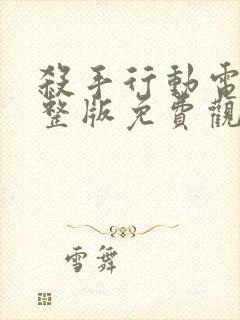 殺手行動電
整版免費觀
雪舞